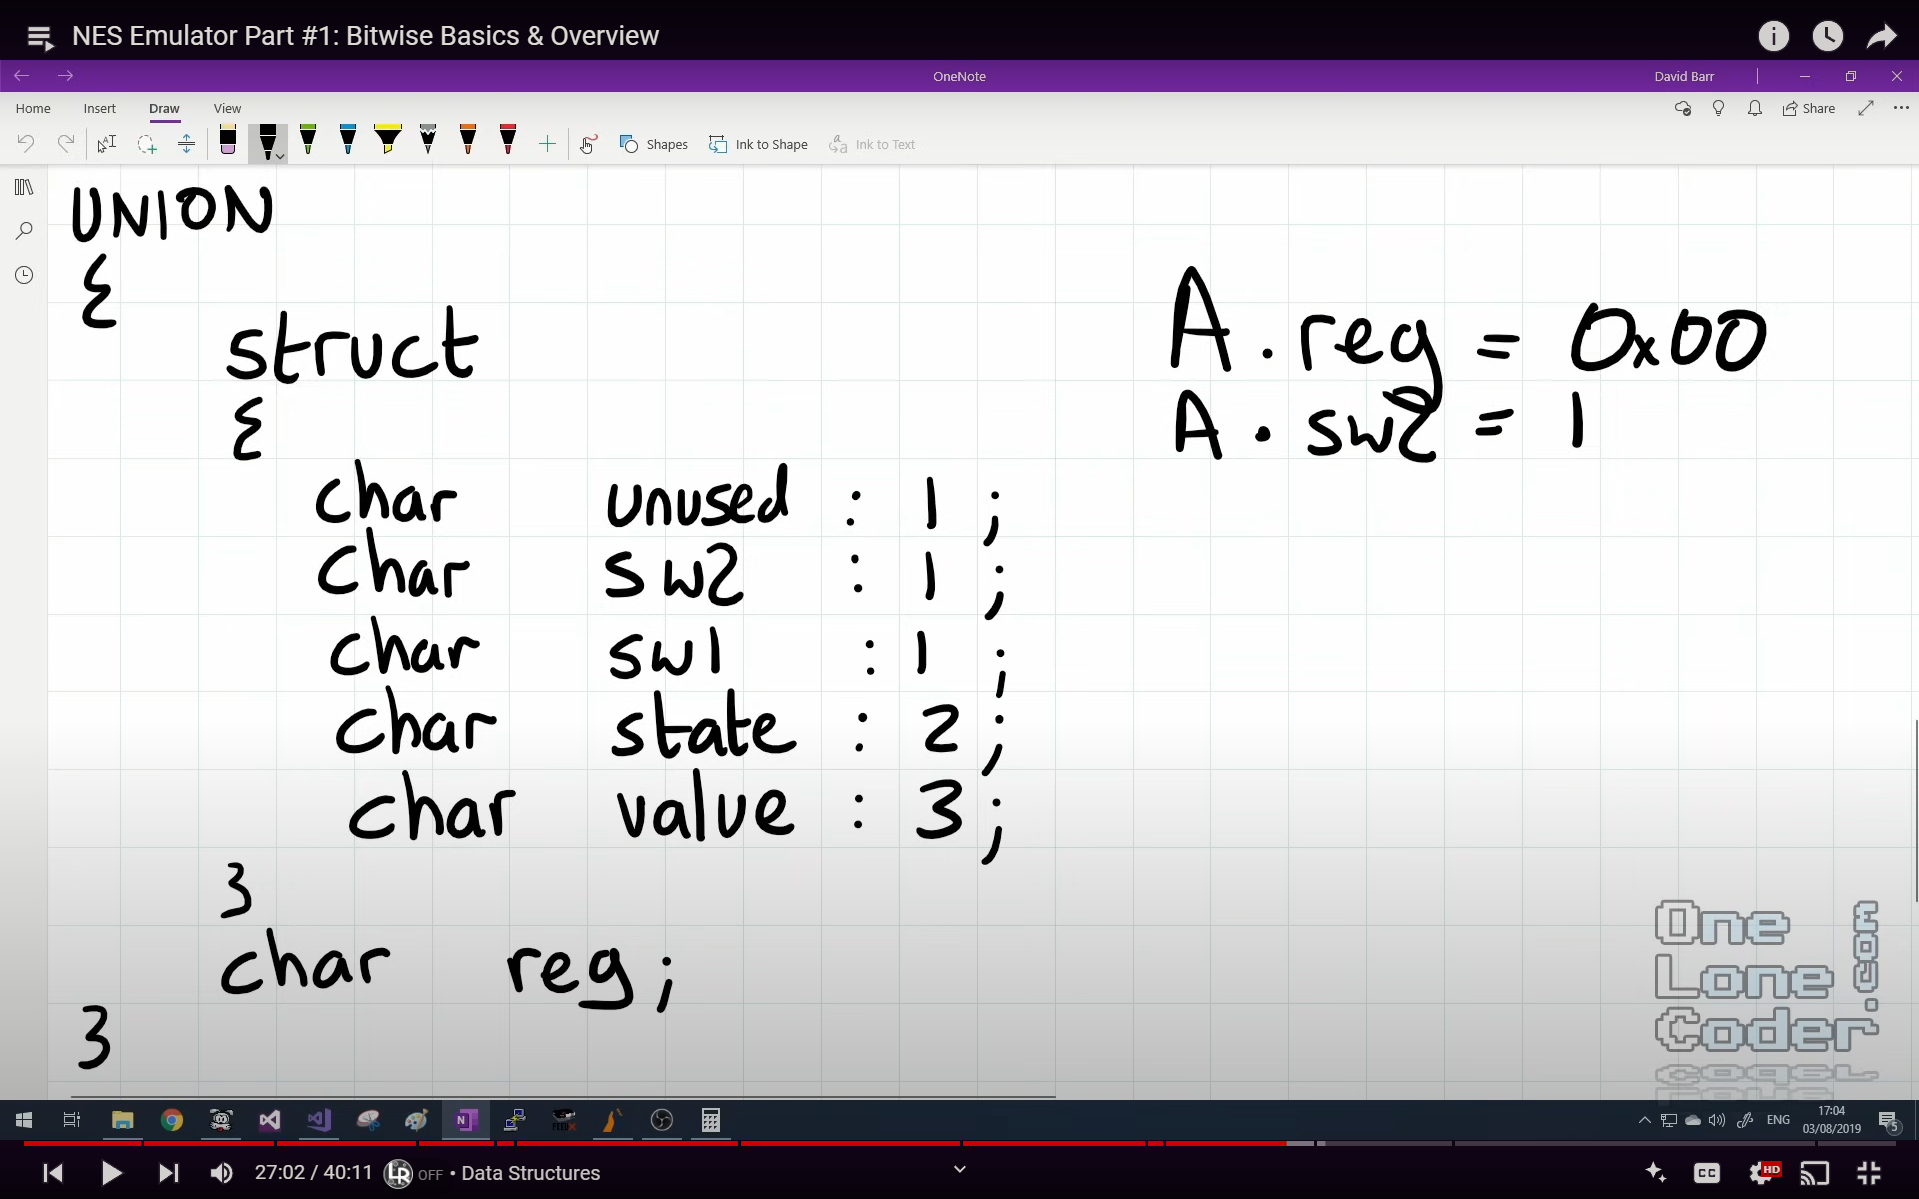 NES Emulator Part #1: Bitwise Basics & Overview
OneNote
David Barr
Home Insert Draw View
Share
Shapes Ink to Shape Ink to Text
UNION
{
struct
{
char unused : 1 ;
char sw2 : 1 ;
char sw1 : 1 ;
char state : 2 ;
char value : 3 ;
}
char reg ;
}
A . reg = 0x00
A . sw2 = 1
One
Lone
Coder
.com
17:04
ENG
03/08/2019
5
27:02 / 40:11 LR OFF • Data Structures
CC
HD